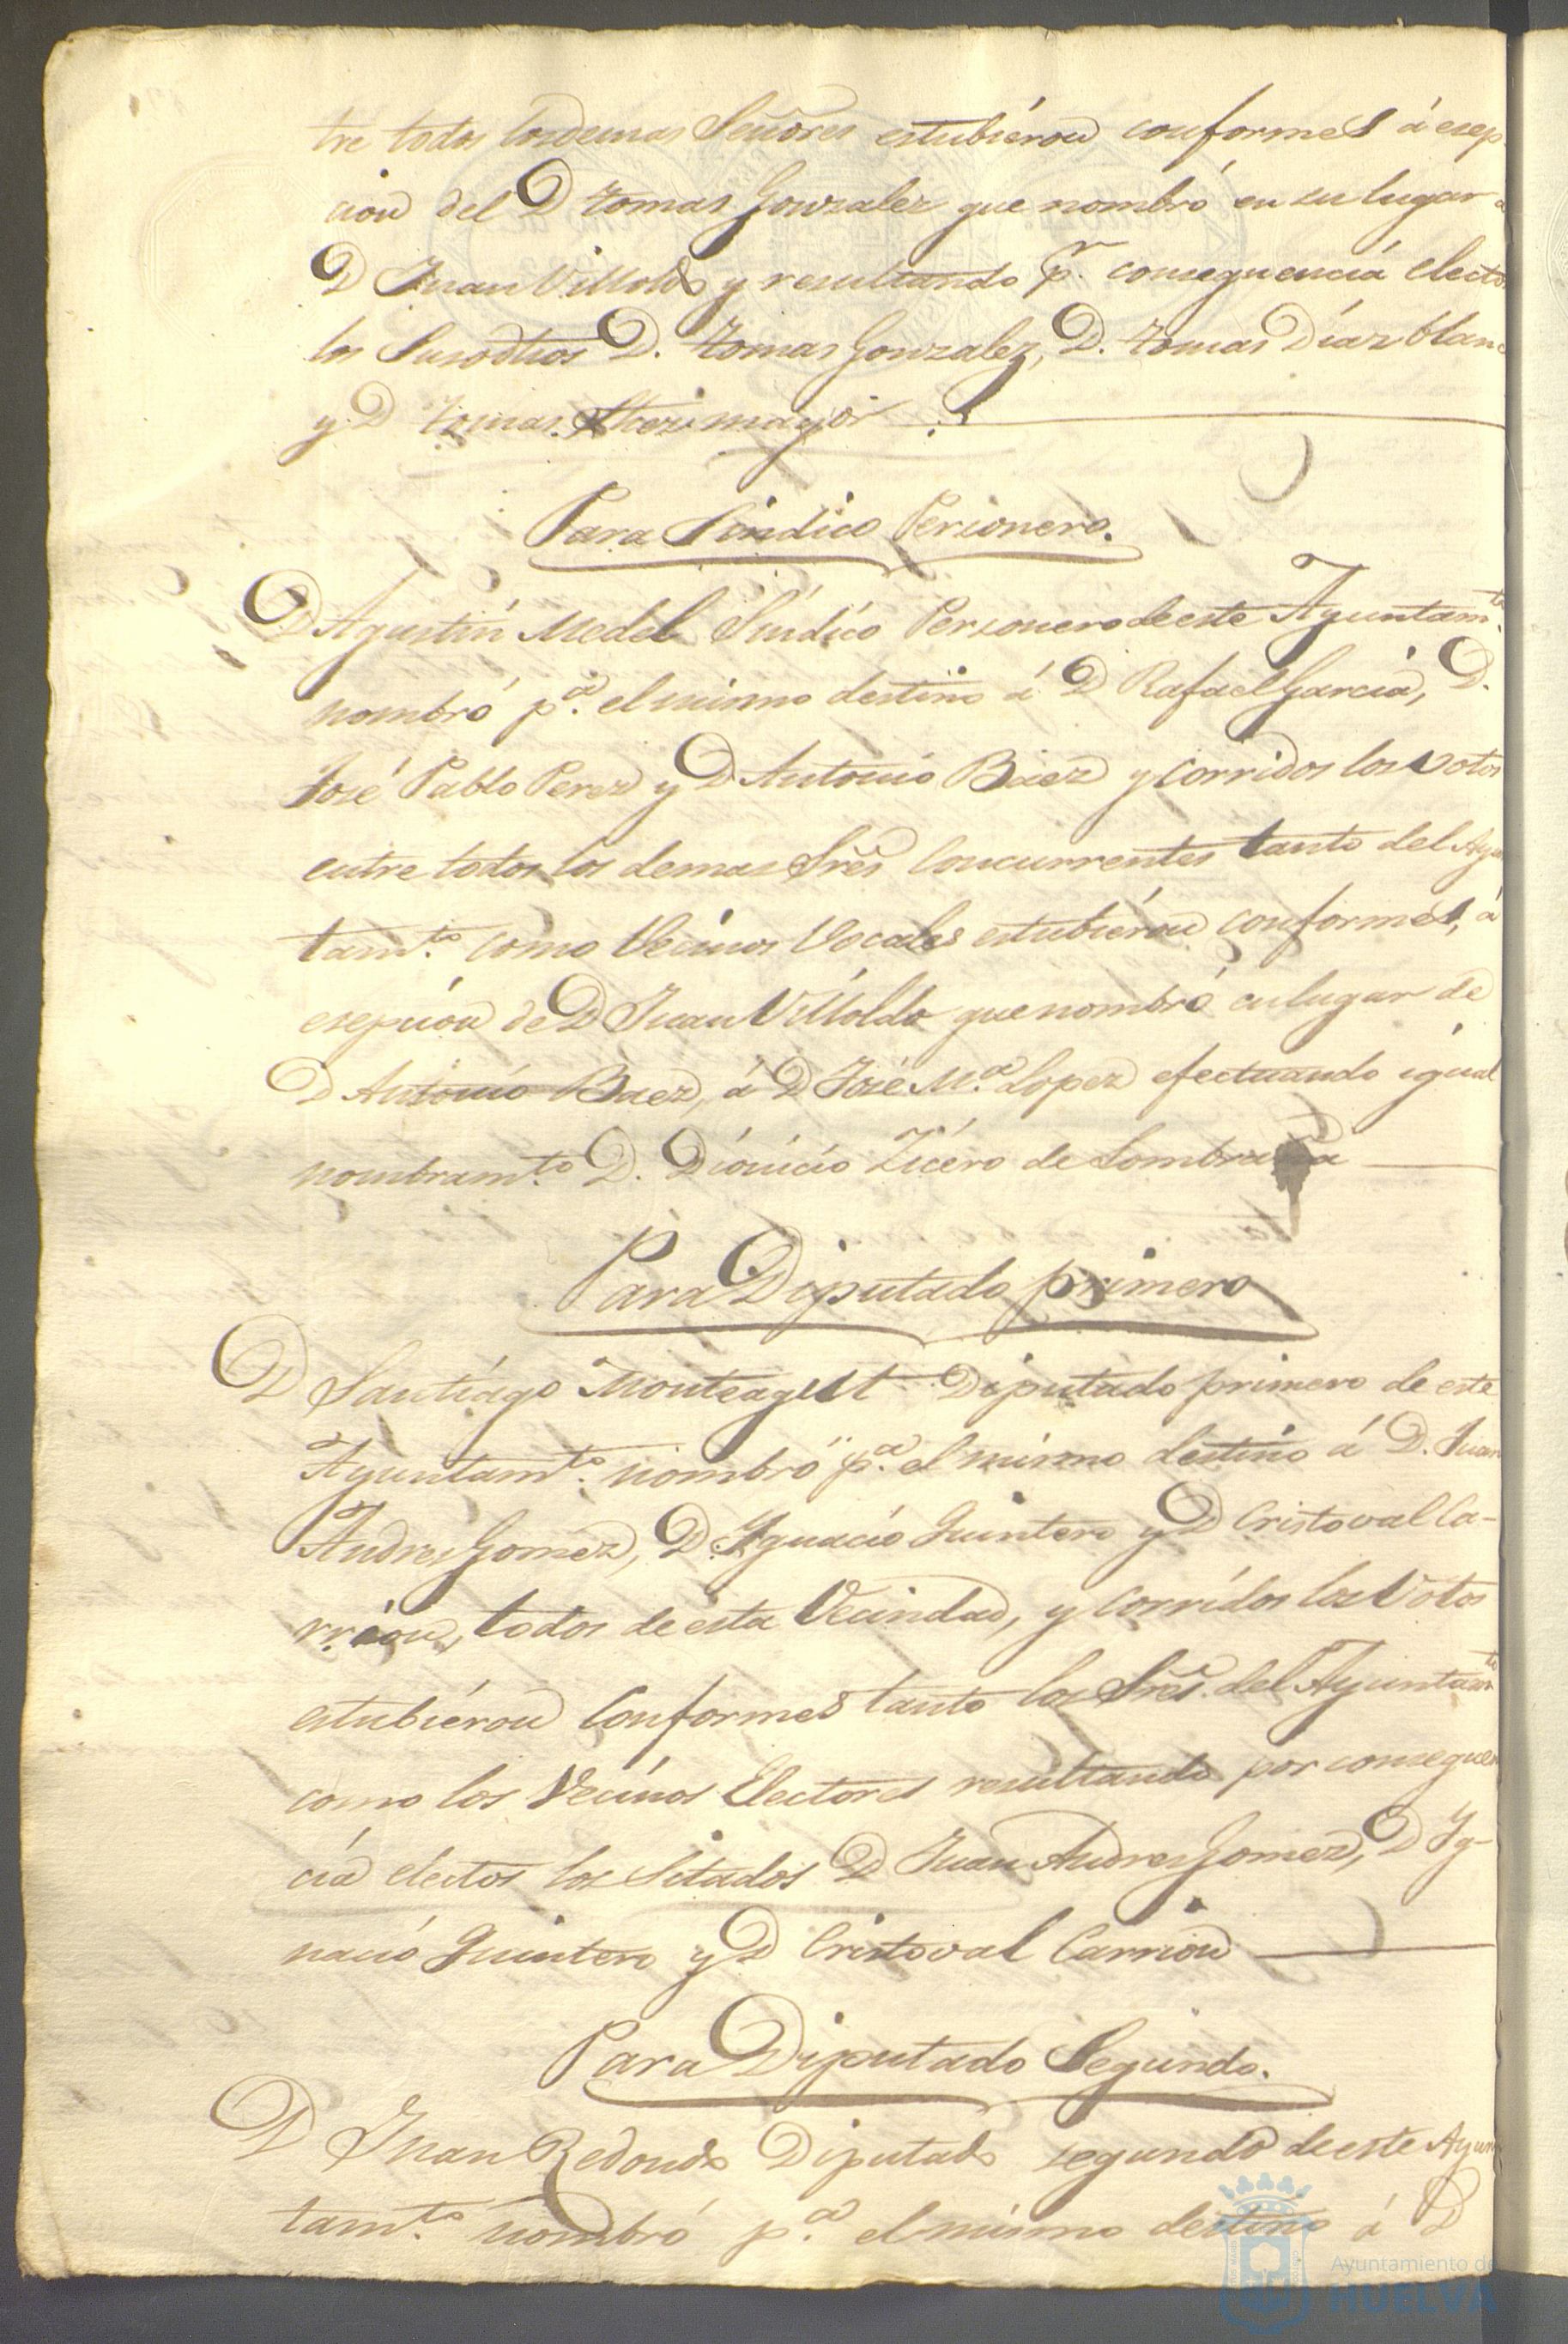 tre todos los demas Señores estubiéron conformes á esep
cion del D Tomas Gonzalez que nombró en su lugar a
D Juan Villoldo y resultando p.r consequencia electo
los Susodhos D. Tomas Gonzalez, D. Tomas Diaz blanc
y D Tomas mayor
Para Sindico Personero.
D Agustin Medel Síndico Personero de este Ayuntam.to
nombró p.a el mismo destino á D Rafael Garcia, D.
José Pablo Perez y D Antonio Baez y corridos los votos
entre todos los demas Sres Concurrentes tanto del Ayu
tam.to como Vecinos Vocales estubiéron conformes, á
esepcion de D Juan Villoldo que nombró en lugar de
D Antonio Baez, á D José M.a Lopez efectuando igual
nombram.to D. Dionicio Zicero de Sombraña
Para Diputado primero
D Santiago Monteagut Diputado primero de este
Ayuntam.to nombró p.a el mismo destino á D. Juan
Andres Gomez, D. Ygnacio Quintero y D Cristoval Ca-
rrion, todos de esta Vecindad, y corridos los Votos
estubiéron Conformes tanto los Sres. del Ayuntam.to
como los Vecinos Electores resultando por consequen
cia electos los Sitados D Juan Andres Gomez, D Yg-
nacio Quintero y D Cristoval Carrion
Para Diputado Segundo.
D Juan Redondo Diputado segundo de este Ayun
tam.to nombró p.a el mismo destino á D
Ayuntamiento de
HUELVA